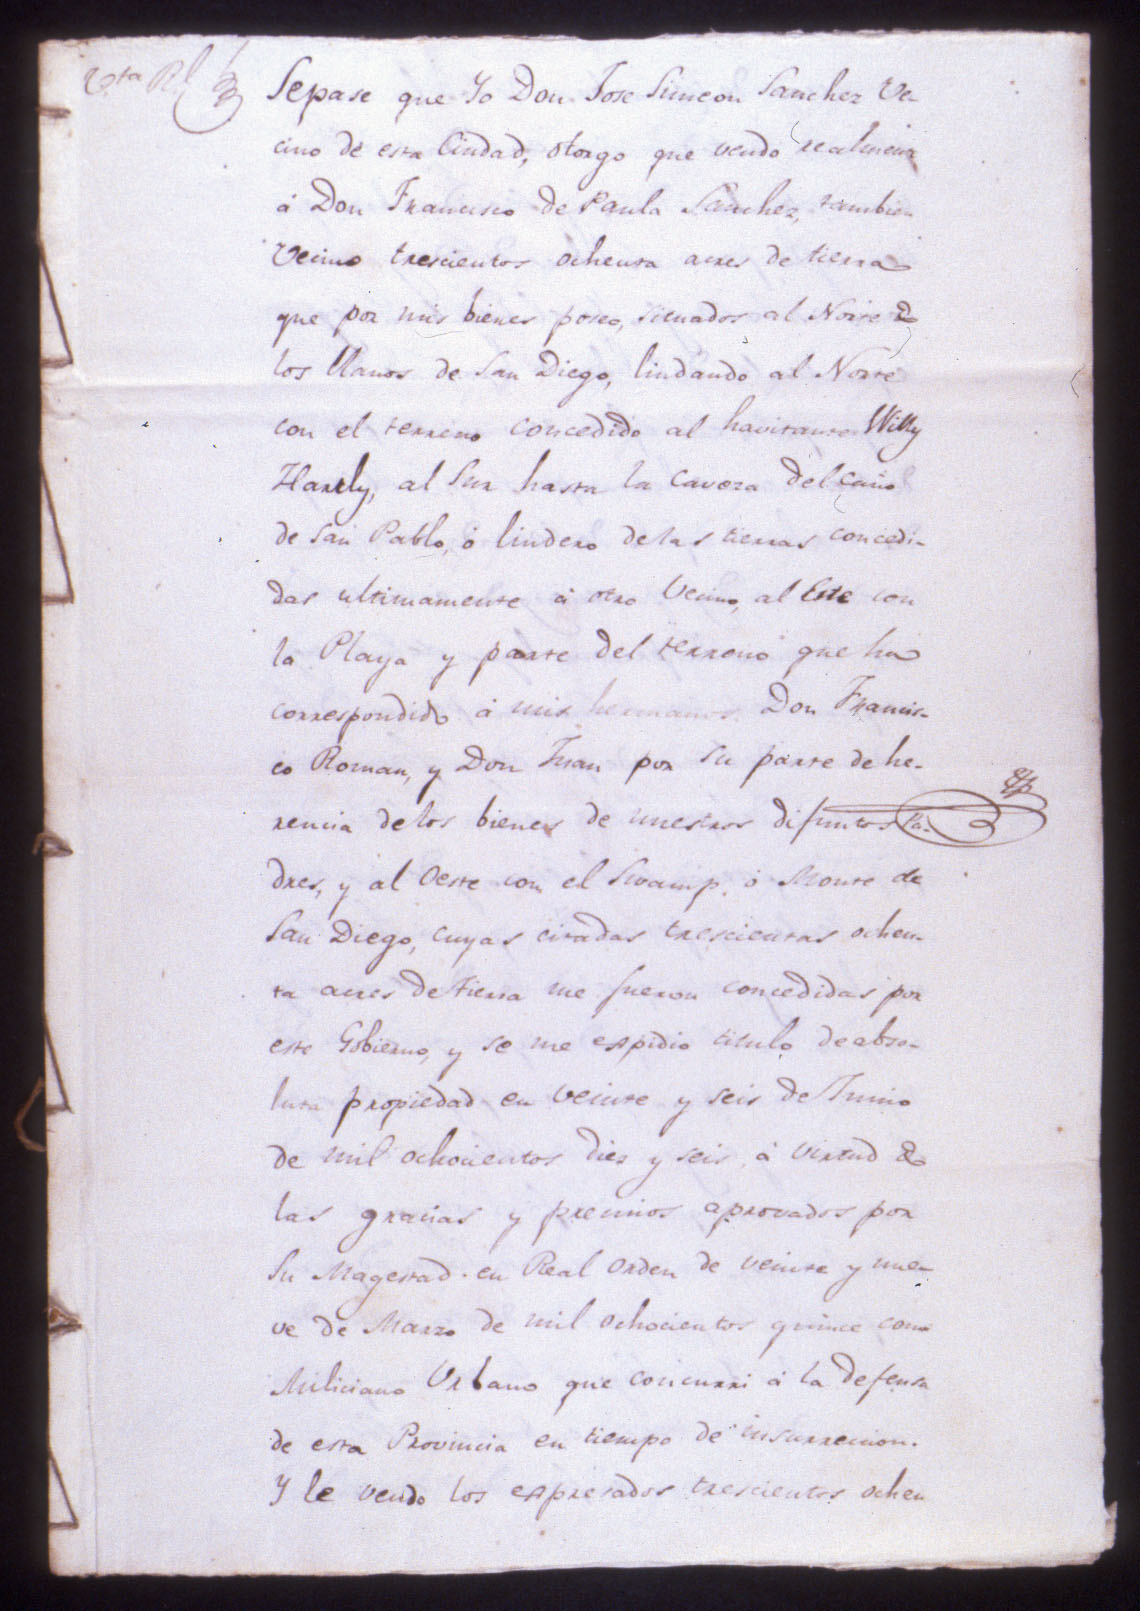 Vta Rl
Sepase que Yo Don Jose Simeon Sanchez Ve-
cino de esta Ciudad, otorgo que vendo realmente
á Don Francisco de Paula Sanchez, tambien
Vecino trescientos ochenta acres de tierra
que por mis bienes poseo, situados al Norte de
los llanos de San Diego, lindando al Norte
con el terreno concedido al havitante Willy
Hartly, al Sur hasta la caveza del Caño
de San Pablo, ó lindero de las tierras concedi-
das ultimamente á otro Vecino, al Este con
la Playa y parte del terreno que ha
correspondido á mis hermanos Don Francis-
co Roman, y Don Juan por su parte de he-
rencia de los bienes de nuestros difuntos Pa-
dres, y al Oeste con el Swamp, ó Monte de
San Diego, cuyas citadas trescientas ochen-
ta acres de tierra me fueron concedidas por
este Gobierno, y se me espidio titulo de abso-
luta propiedad en veinte y seis de Junio
de mil ochocientos diez y seis, á virtud de
las gracias y premios aprovados por
Su Magestad en Real Orden de veinte y nue-
ve de Marzo de mil ochocientos quince como
Miliciano Urbano que concurri á la defensa
de esta Provincia en tiempo de insurreccion.
Y le vendo los espresados trescientos ochen